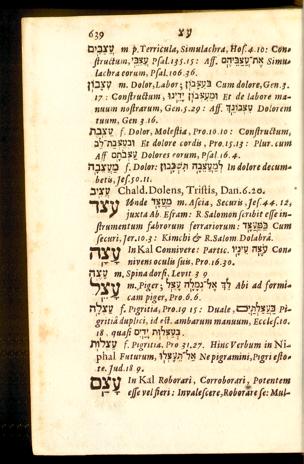 639 עצ
עֲצַבִּים m p. Terricula, Simulachra, Hos. 4. 10: Con-
structum, עֲצַבֵּי, Psal. 135. 15: Aff. אֶת־עֲצַבֵּיהֶם Simu-
lachra eorum, Psal. 106. 36.
עִצָּבוֹן m. Dolor, Labor; בְּעִצָּבוֹן Cum dolore, Gen. 3.
17: Constructum, וּמֵעִצְּבוֹן יָדֵינוּ Et de labore ma-
nuum nostrarum, Gen. 5. 29: Aff. עִצְּבוֹנֵךְ Dolorem
tuum, Gen 3. 16.
עַצֶּבֶת f. Dolor, Molestia, Pro. 10. 10: Constructum,
וּבְעַצְּבַת־לֵב Et dolore cordis, Pro. 15. 13: Plur. cum
Aff עַצְּבוֹתָם Dolores eorum, Psal. 16. 4.
מַעֲצֵבָה f. Dolor; לְמַעֲצֵבָה תִּשְׁכָּבוּן In dolore decum-
betis, Jes. 50. 11.
עֲצִיב Chald. Dolens, Tristis, Dan. 6. 20.
עצד Unde מַעֲצָד m. Ascia, Securis, Jes. 44. 12,
juxta Ab. Esram: R. Salomon scribit esse in-
strumentum fabrorum ferrariorum: בַּמַּעֲצָד Cum
securi, Jer. 10. 3: Kimchi & R. Salom Dolabrâ.
עצה In Kal Connivere: Partic. עֹצֶה עֵינָיו Con-
nivens oculis suis, Pro. 16. 30.
עָצֶה m. Spina dorsi, Levit 3 9
עצל m., Piger; לֵךְ אֶל־נְמָלָה עָצֵל Abi ad formi-
cam piger, Pro. 6. 6.
עַצְלָה f. Pigritia, Pro. 19 15: Duale, בַּעֲצַלְתַּיִם Pi-
gritiâ duplici, id est, ambarum manuum, Eccles. 10.
18. quasi בְּעַצְלוּת יָדַיִם
עַצְלוּת f. Pigritia, Pro 31. 27. Hinc Verbum in Ni-
phal Futurum, אַל־תֵּעָצְלוּ Ne pigramini, Pigri esto-
te. Jud. 18 9.
עצם In Kal Roborari, Corroborari, Potentem
esse vel fieri: Invalescere, Roborare se: Mul-